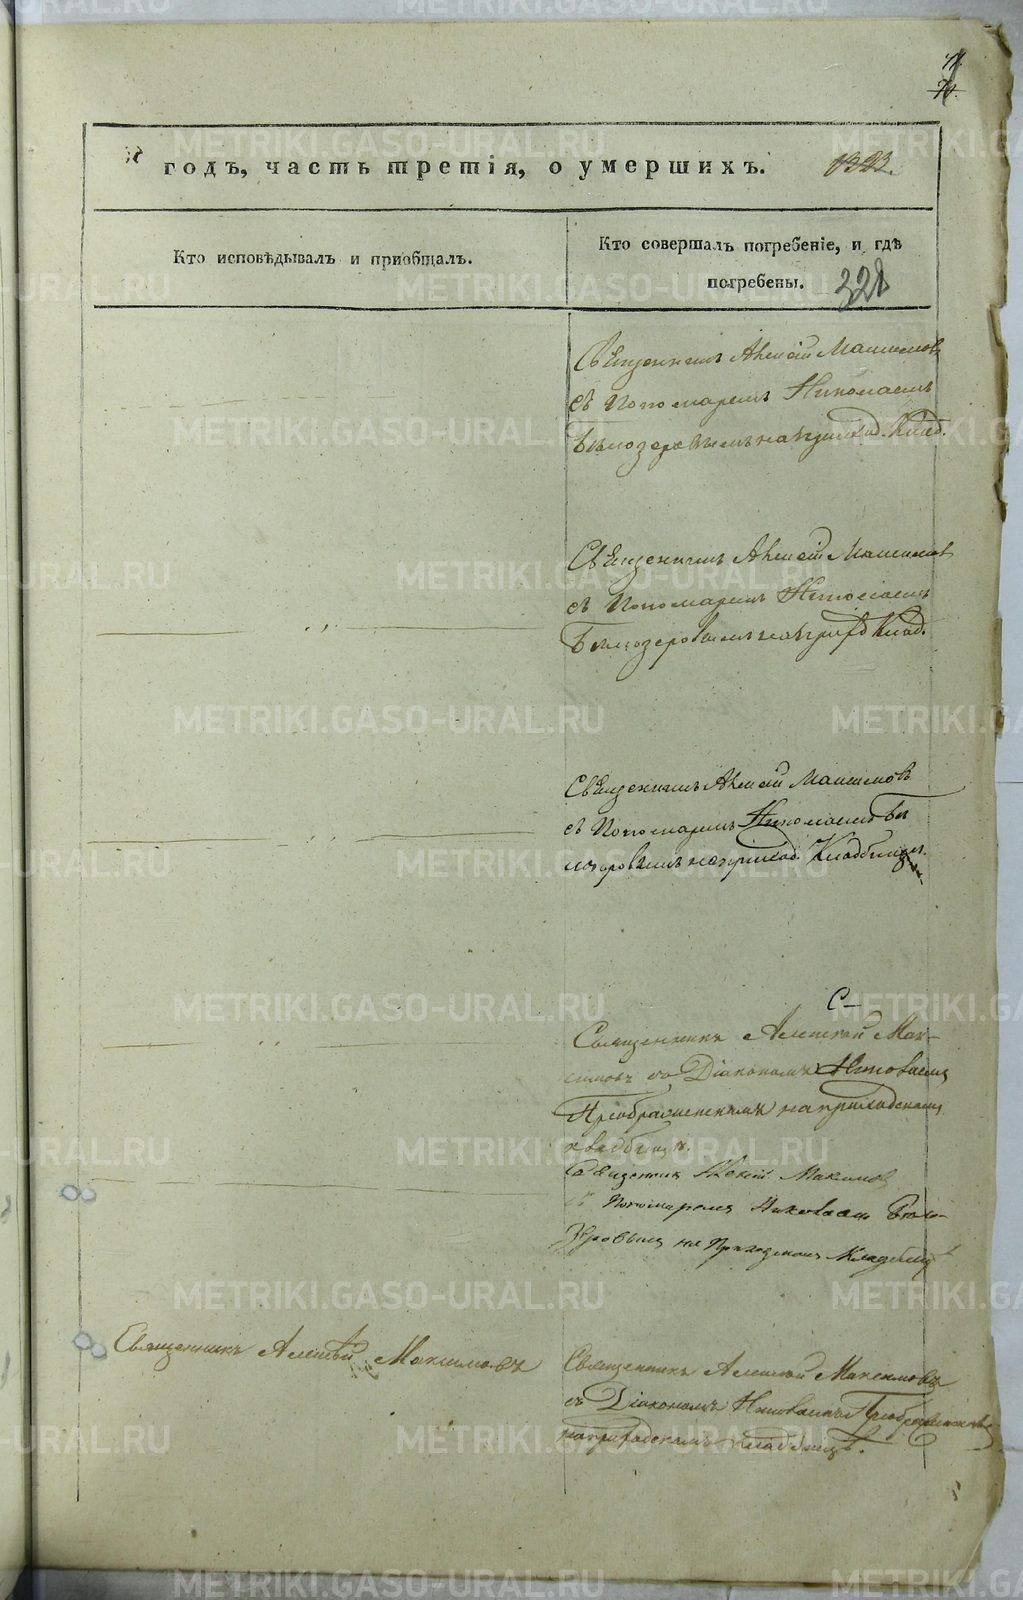 годъ, часть третія, о умершихъ. 1323.
Кто исповѣдывалъ и пріобщалъ.
Кто совершалъ погребеніе, и гдѣ
погребены. 328
Священникъ Алексій Максимовъ
съ Пономаремъ Николаемъ
Бѣлозеровымъ на приход. Клад.
Священникъ Алексій Максимовъ
съ Пономаремъ Николаемъ
Бѣлозеровымъ на приход Клад.
Священникъ Алексій Максимовъ
съ Пономаремъ Николаемъ Бѣ
лозеровымъ на приход. Кладбищѣ.
С—
Священникъ Алексѣй Мак-
симовъ со Діакономъ Николаемъ
Преображенскимъ на приходскомъ
кладбищѣ.
Священник Алексій Максимов
съ Пономаремъ Николаем Бѣло-
зеровымъ на Приходском Кладбищѣ
Священникъ Алексѣй Максимовъ
Священникъ Алексѣй Максимовъ
съ Діакономъ Николаемъ Преображенскимъ
на приходскомъ кладбищѣ.
METRIKI.GASO-URAL.RU